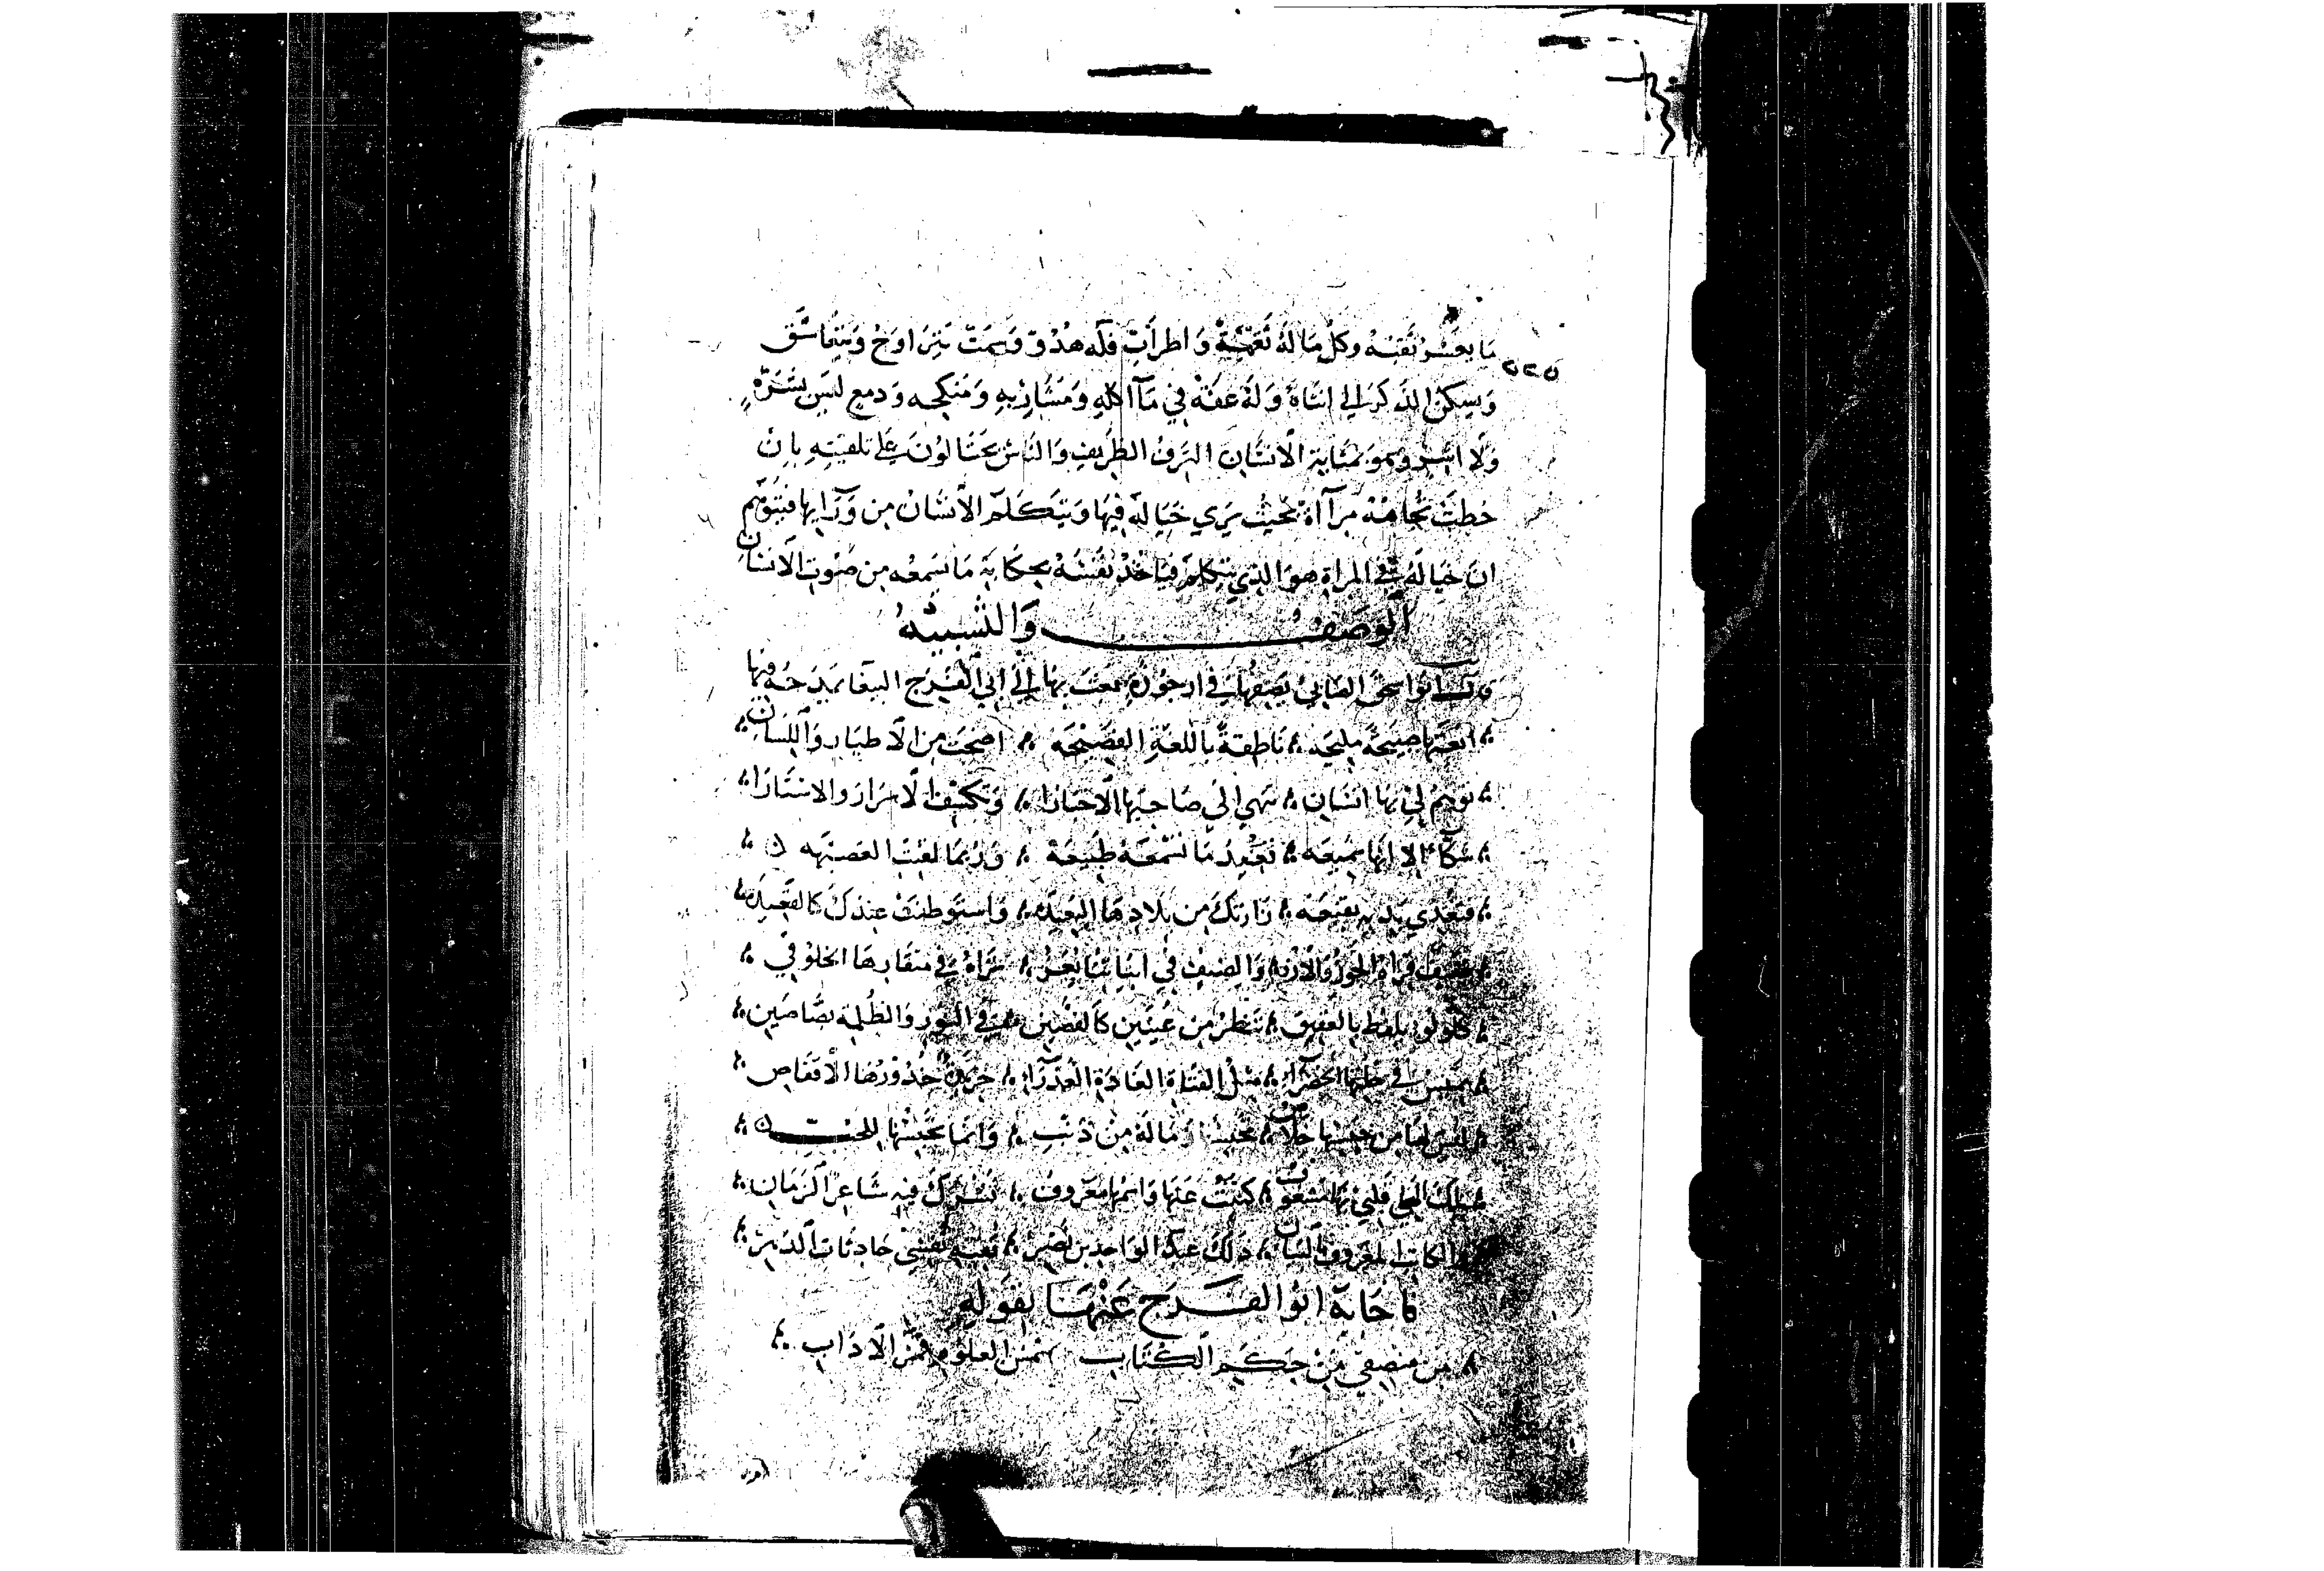 ما يعسر نفسه وكل ماله نعمة واطراب فله هدو وسمت يتراوح ويتعاشق
٥٢٢
ويسكن الذكر الى انثاه وله عفة في مآاكله ومشاربه ومنكحه ودمع ليس بشره
ولا اشر وهو بمثابة الانسان الترف الظريف والناس يحتالون على تلقينه بان
تجاهه مرآاة بحيث يرى خياله فيها ويتكلم الانسان من ورآيها فيتوهم
ان خياله في المراة هو الذي يتكلم فياخذ نفسه بحكاية ما يسمعه من صوت الانسان
الوصف والتشبيه
ابو اسحق الصابي يصفها في ارجوزة بعث بها الى ابي الفرج الببغا يمدحه فيها
انعتها صبيحة مليحه ناطقة باللغة الفصيحه اضحت من الاطيار واللسان
توهم لي بها انسان تنهي الى صاحبها الاخبارا وتكشف الاسرار والاستارا
سكآء الا انها سميعه تعيد ما تسمعه طبيعه وربما لقنت العضيهه
فتغدي بذيه زارتك من بلادها البعيده واستوطنت عندك كالقعيده
ضيف قراه الجوز والارز والضيف في ابياتنا يعز تراه في منقارها الخلوقي
كلولو يلقط بالعقيق تنظر من عينين كالفصين في النور والظلمة بصاصين
تميس في حلتها الخضرآء مثل الفتاة الغادة العذرآء خريدة خدورها الاقفاص
ليس لها من حبسها خلاص نحبسها وماله من ذنب وانما نحبسها للحب
تلك التي قلبي بها مشغوف كنيت عنها واسمها معروف نشرك فيه شاعر الزمان
والكاتب المعروف بالبيان ذلك عبد الواحد بن نصر تقيه نفسي حادثات الدهر
فاجابه ابو الفرج عنها بقوله
من منصفي من حكم الكتاب شمس العلوم قمر الاداب